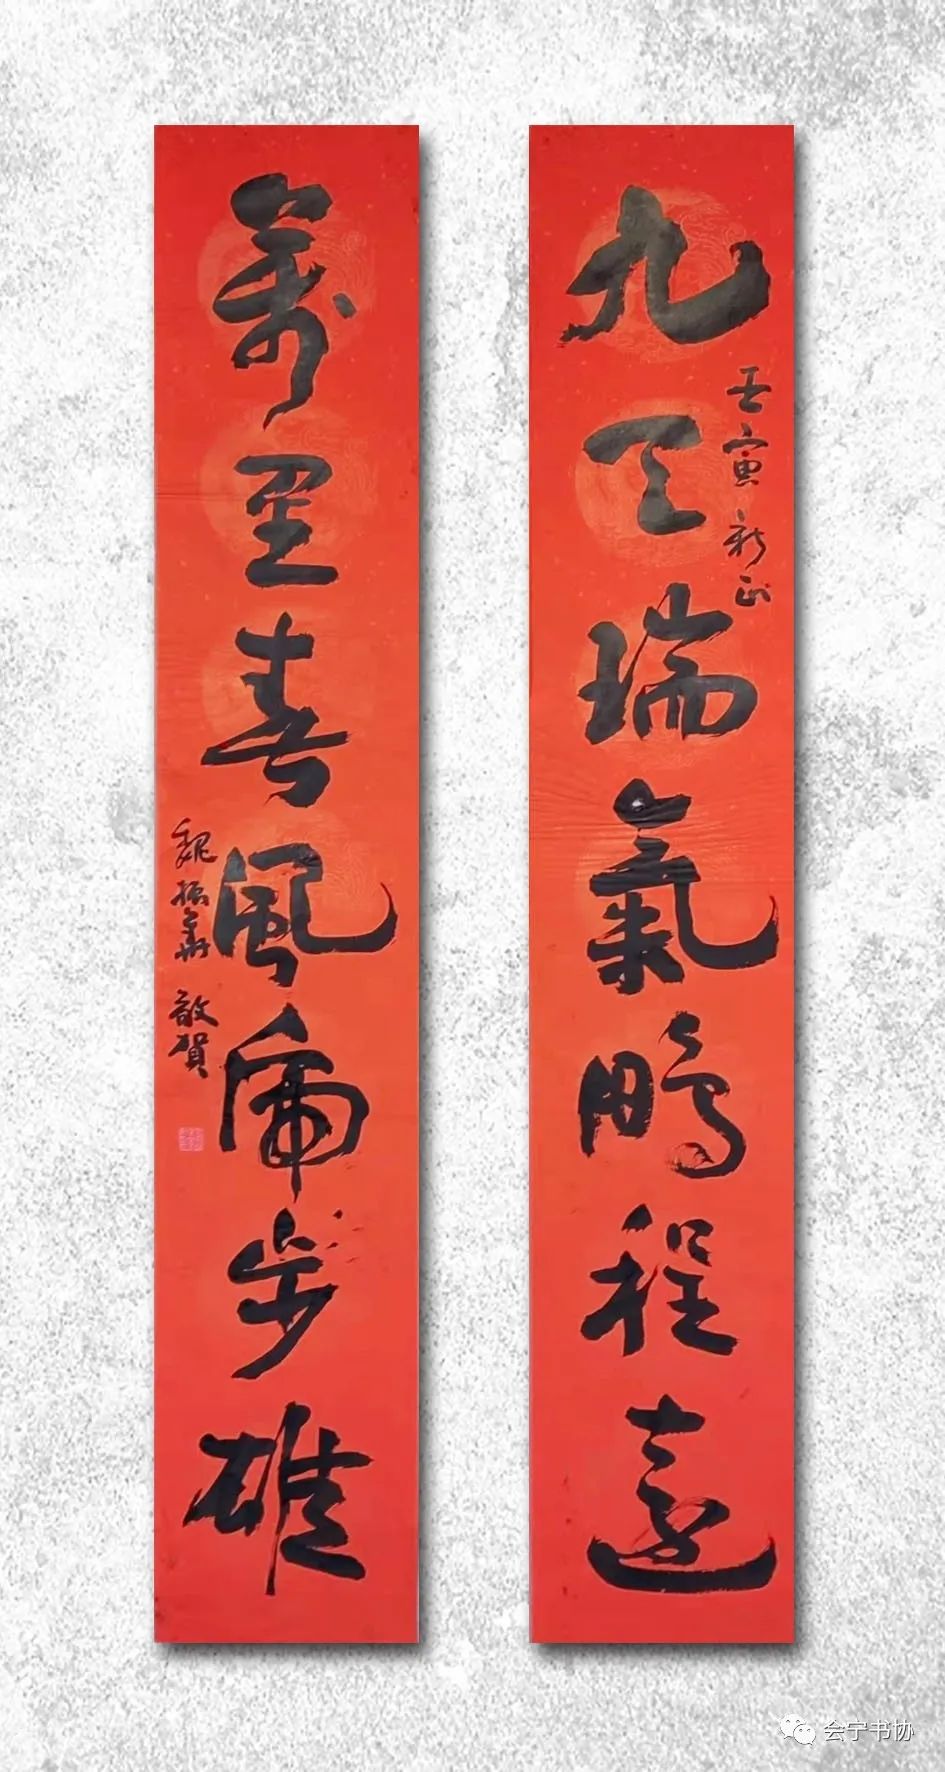 九天瑞氣鵬程遠
壬寅新正
萬里春風虎步雄
魏振華敬賀
会宁书协